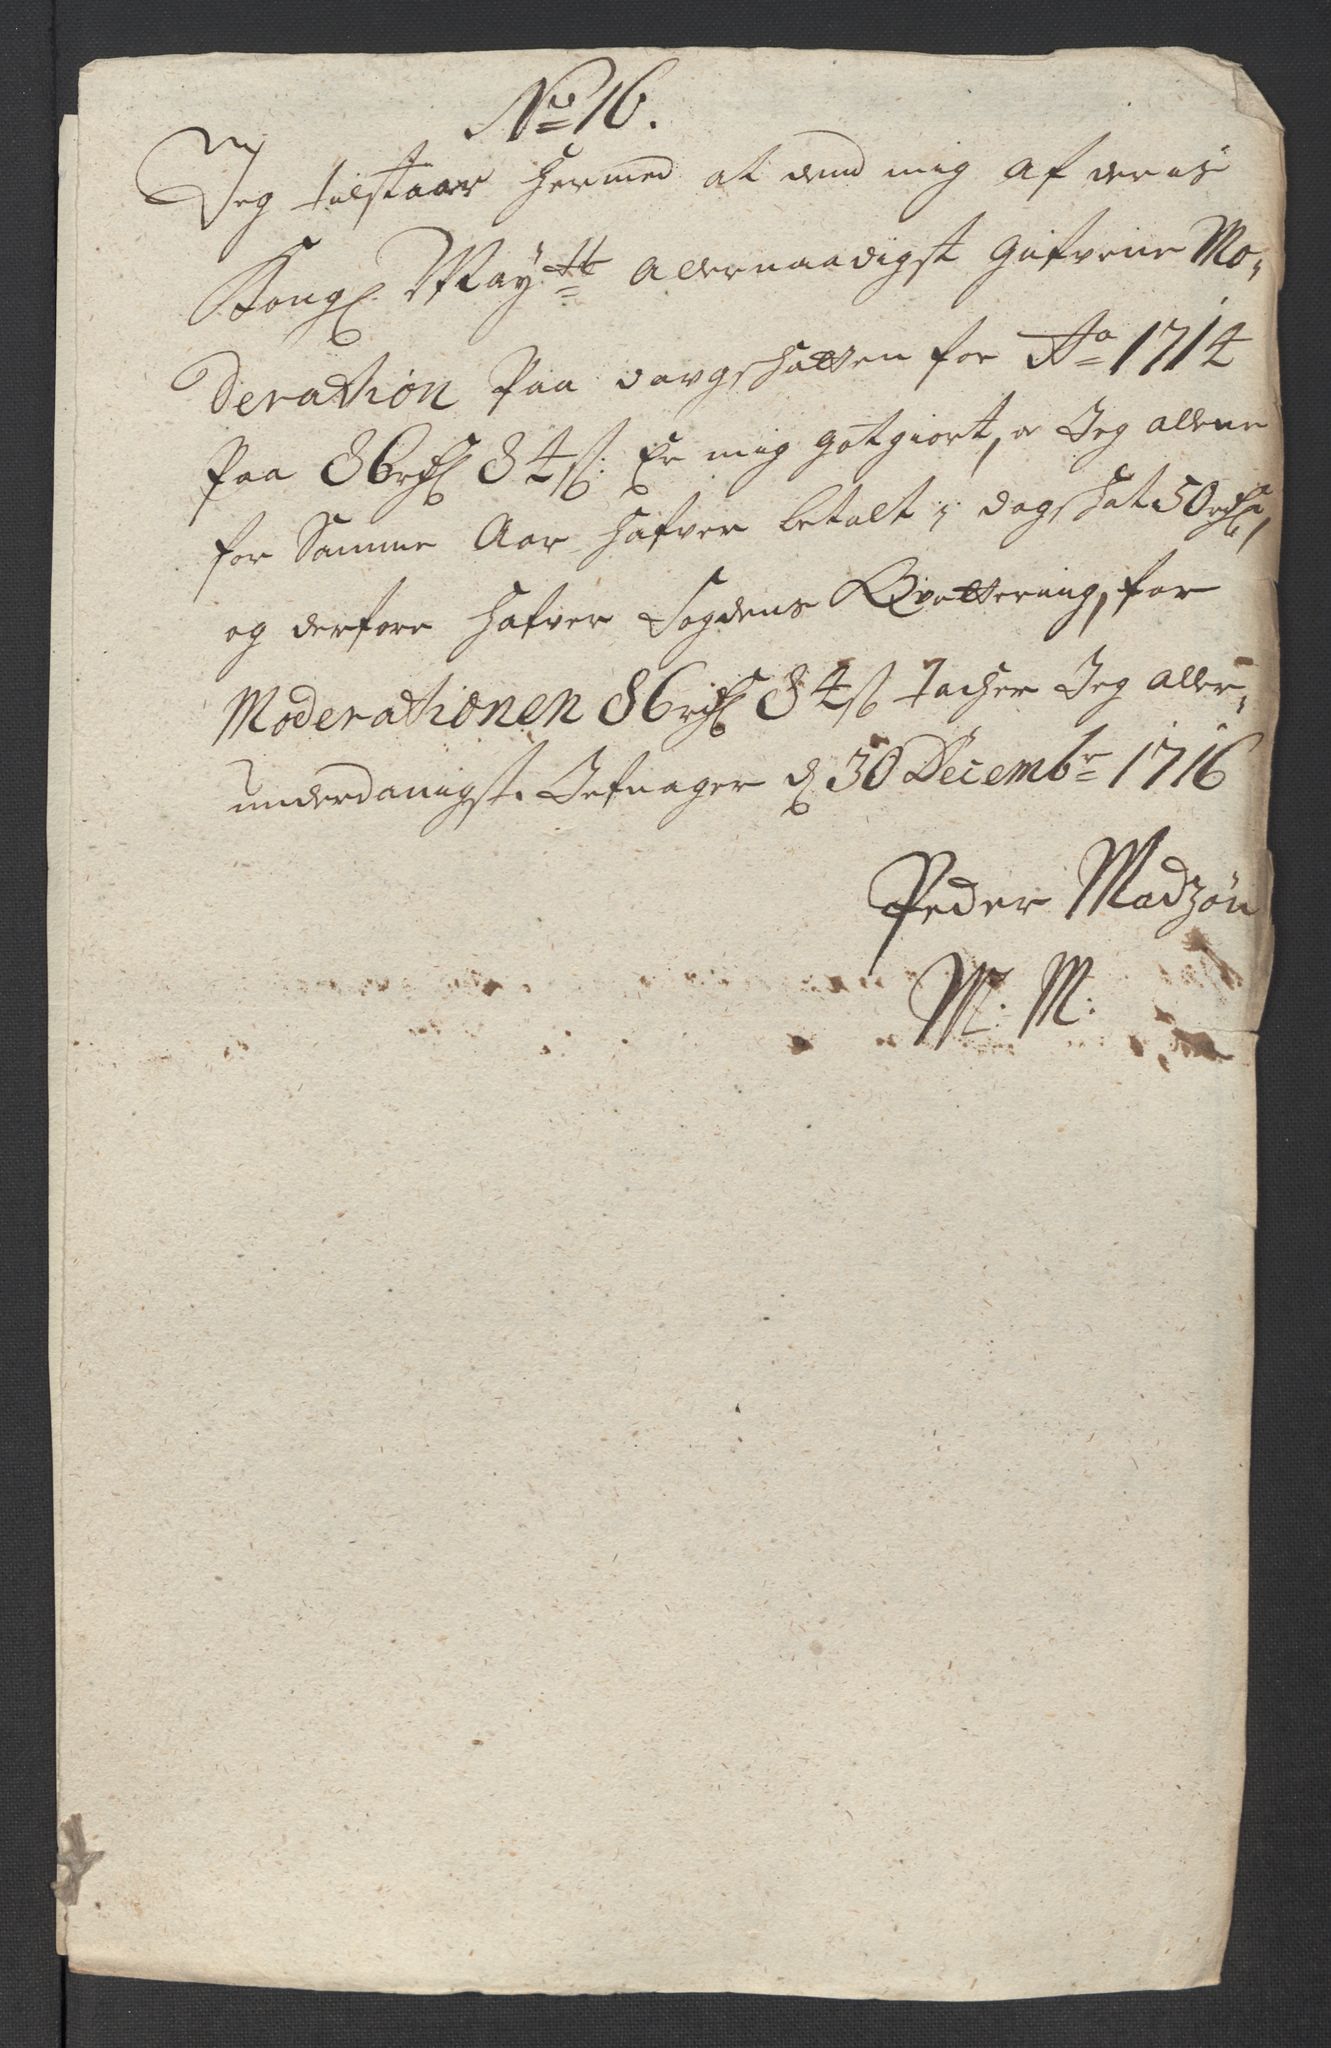 No 16.
Jeg tilstaar hermed at dend mig af deris
Kongl. Maytt allernaadigst gifvene Mo-
deration Paa davgskatten for Ao 1714
Paa 86 rdl 84 s: Er mig gotgiort, Jeg allene
for Samme Aar hafver betalt i dagskat 50 rdl,
og derfore hafver fogdens Qvittering, for
Moderationen 86 rdl 84 s tacher Jeg aller-
underdanigst. Jefnager d 30 Decembr 1716
Peder Madzøn
M: M: